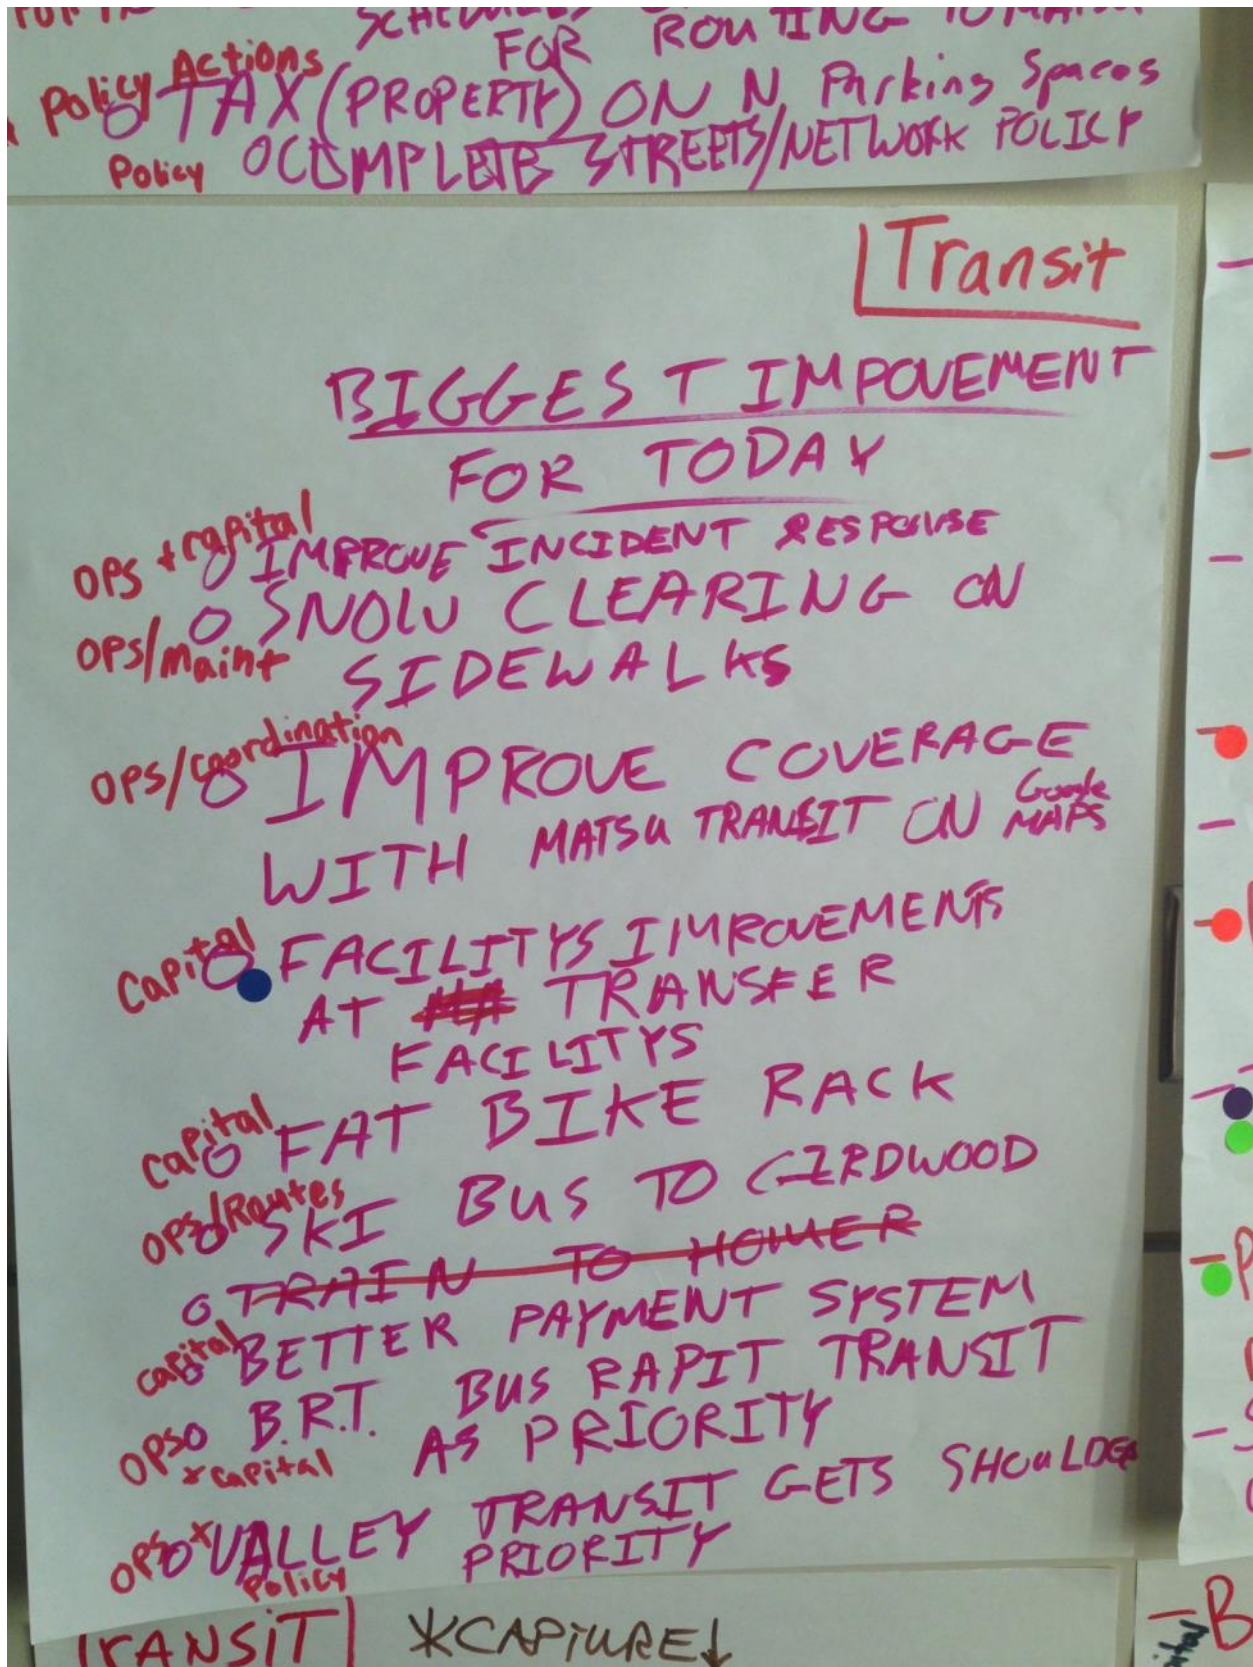 SCHEDULES
FOR ROUTING TO MATSU
Policy Actions
O TAX (PROPERTY) ON N Parking Spaces
Policy O COMPLETE STREETS/NETWORK POLICY
Transit
BIGGEST IMPOVEMENT
FOR TODAY
OPS + capital
O IMPROVE INCIDENT RESPONSE
O SNOW CLEARING ON
OPS/maint SIDEWALKS
OPS/coordination
O IMPROVE COVERAGE
WITH MATSU TRANSIT ON Google MAPS
Capital
O FACILITYS IMPROVEMENTS
AT TRANSFER
FACILITYS
Capital
O FAT BIKE RACK
OPS/Routes
O SKI BUS TO GIRDWOOD
O TRAIN TO HOMER
capital
O BETTER PAYMENT SYSTEM
OPS O B.R.T. BUS RAPIT TRANSIT
+ capital AS PRIORITY
OPS + O VALLEY TRANSIT GETS SHOULDER
Policy PRIORITY
TRANSIT
*CAPTURE↓
B